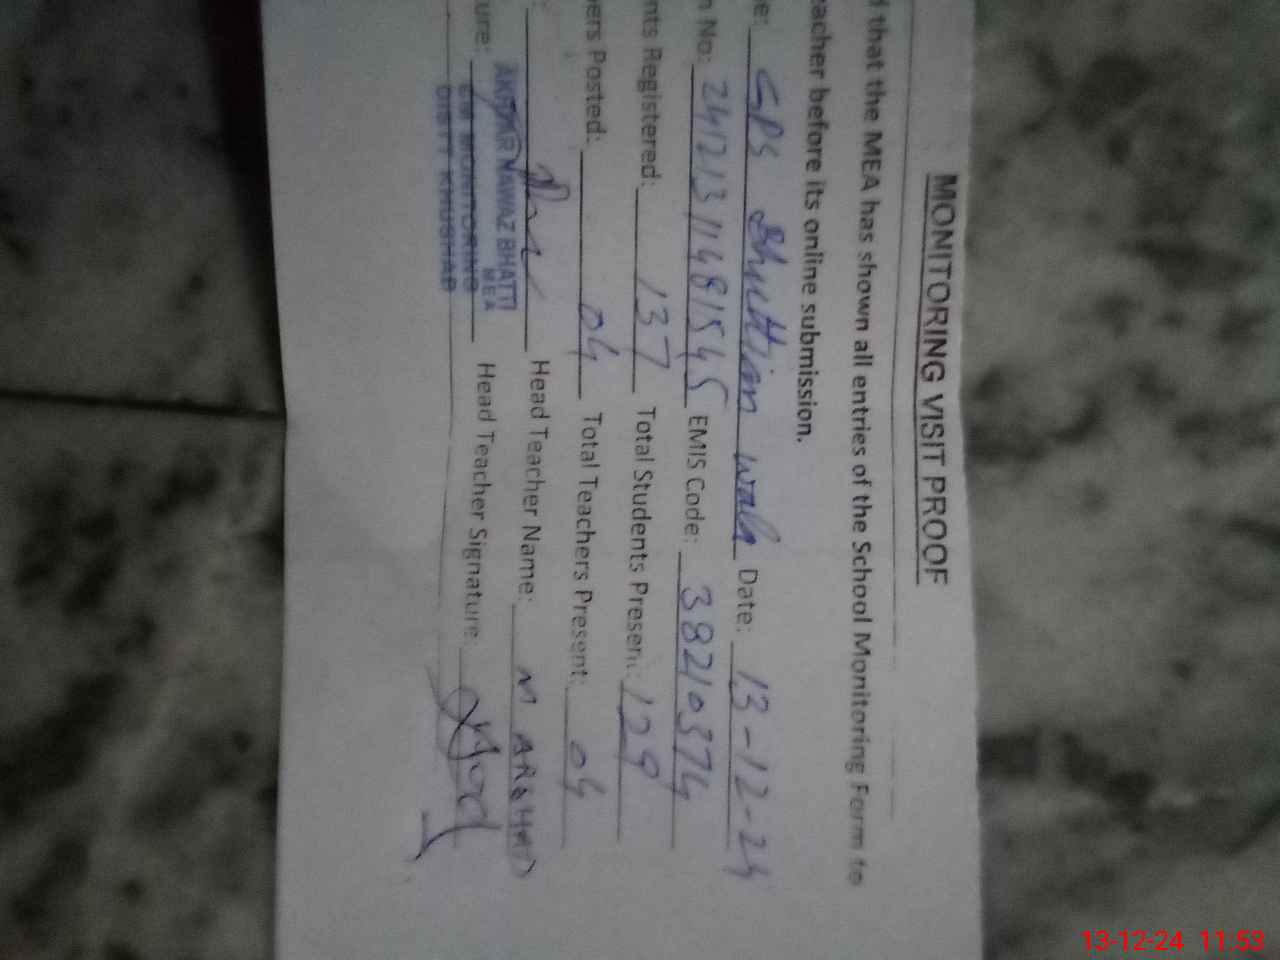 MONITORING VISIT PROOF
that the MEA has shown all entries of the School Monitoring Form to
eacher before its online submission.
e: GPS Bhuttian wala Date: 13-12-24
n No: 2412131148154 5 EMIS Code: 38210374
nts Registered: 137 Total Students Present: 129
ers Posted: 04 Total Teachers Present: 04
Head Teacher Name: M ARSHAD
ure: Head Teacher Signature:
AKHTAR NAWAZ BHATTI
MEA
MONITORING
DISTT KHUSHAB
13-12-24 11:53